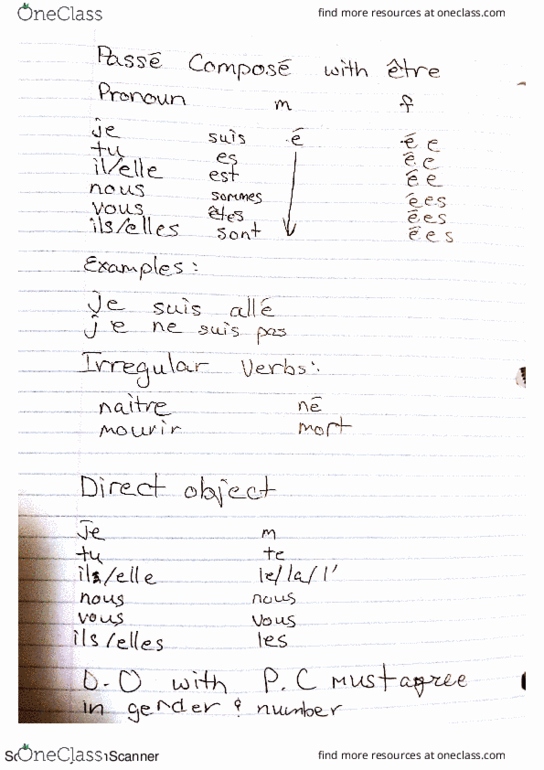 OneClass find more resources at oneclass.com
Passé Composé with être
Pronoun m f
je suis é é e
tu es é e
il/elle est é e
nous sommes é e s
vous êtes é e s
ils/elles sont é e s
Examples:
je suis allé
je ne suis pas
Irregular Verbs:
naître né
mourir mort
Direct object
je m
tu te
ils/elle le/la/l'
nous nous
vous vous
ils/elles les
D.O with P.C must agree
in gender & number
OneClass Scanner find more resources at oneclass.com